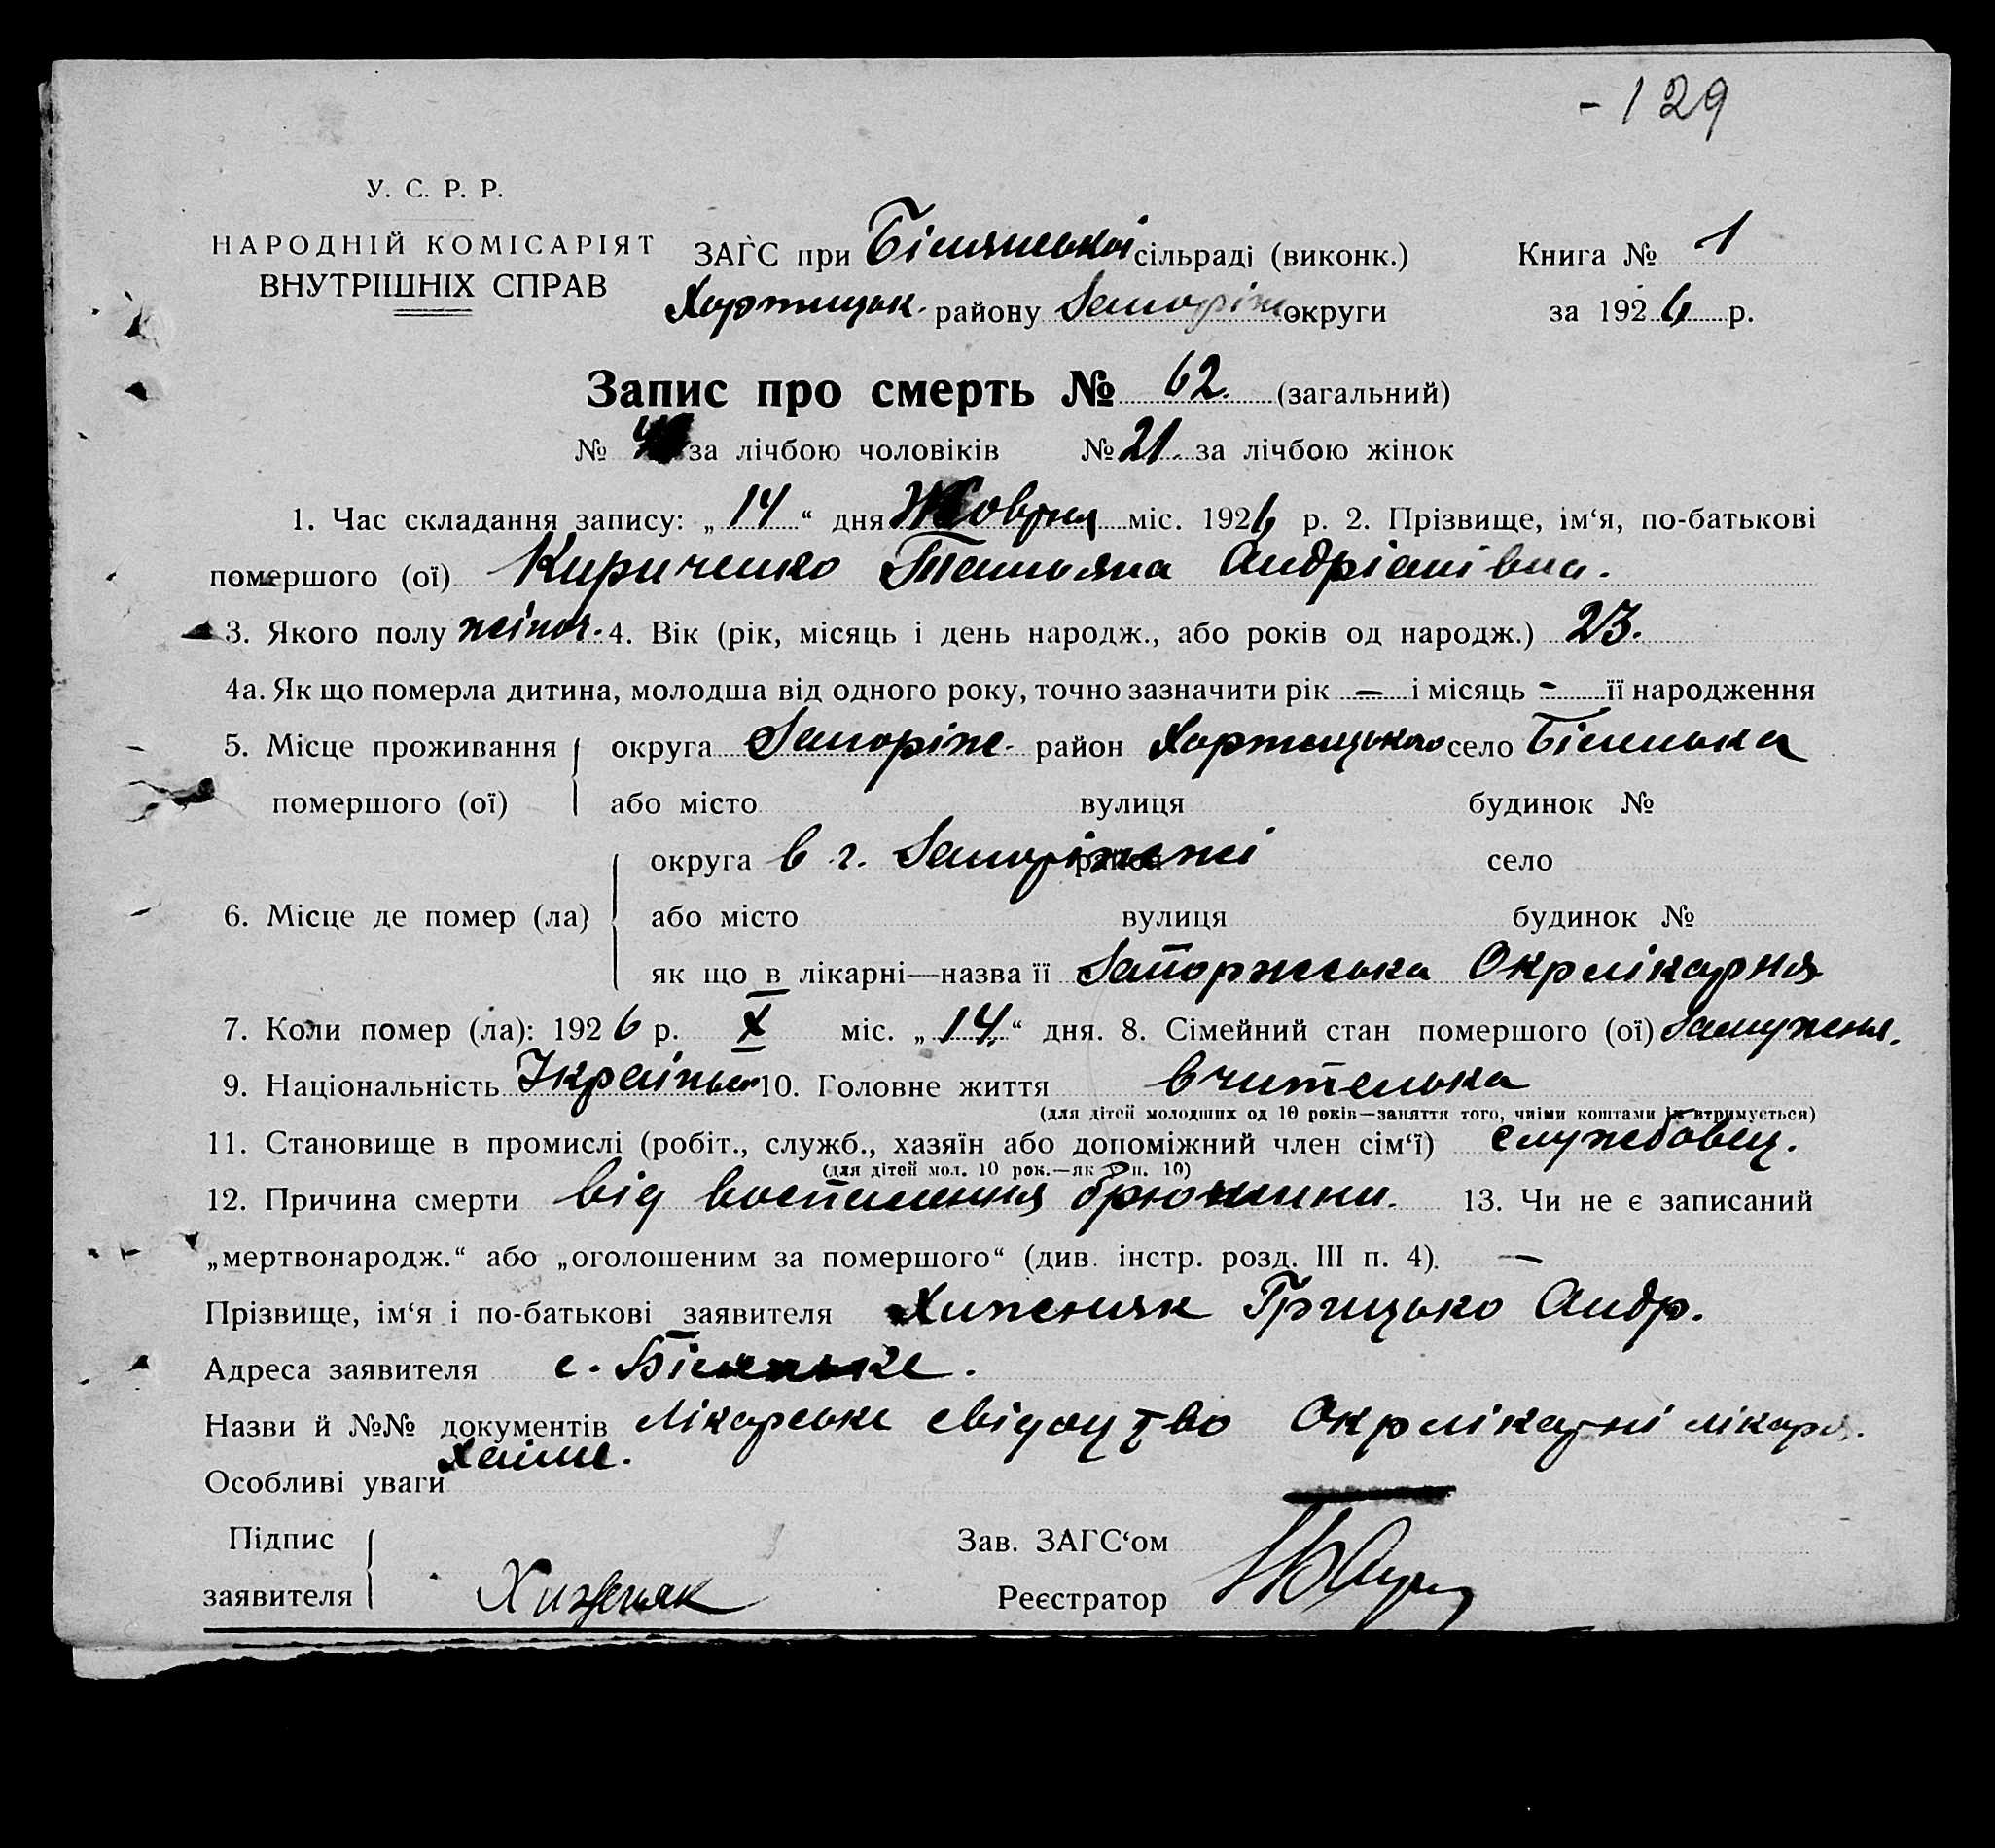 - 129
У. С. Р. Р.
НАРОДНІЙ КОМІСАРІЯТ
ВНУТРІШНІХ СПРАВ
ЗАҐС при Біленської сільраді (виконк.)
Хортицьк. району Запоріж округи
Книга № 1
за 1926 р.
Запис про смерть № 62. (загальний)
№ за лічбою чоловіків № 21. за лічбою жінок
1. Час складання запису: „14“ дня Жовтня міс. 1926 р. 2. Прізвище, ім‘я, по-батькові
помершого (ої) Кириченко Татьяна Андріанівна.
3. Якого полу жіноч. 4. Вік (рік, місяць і день народж., або років од народж.) 23.
4а. Як що померла дитина, молодша від одного року, точно зазначити рік — і місяць - її народження
5. Місце проживання округа Запоріж. район Хортицького село Біленька
помершого (ої) або місто вулиця будинок №
округа в г. Запоріжжі район село
6. Місце де помер (ла) або місто вулиця будинок №
як що в лікарні—назва її Запоржська Окрлікарня
7. Коли помер (ла): 1926 р. X міс. „14.“ дня. 8. Сімейний стан помершого (ої) Замужня.
9. Національність 10. Головне життя вчителька
(для дітей молодших од 10 років—заняття того, чиїми коштами їх втримується)
11. Становище в промислі (робіт., служб., хазяїн або допоміжний член сім‘ї) службовец.
(для дітей мол. 10 рок.—як п. 10)
12. Причина смерти від воспаления брюшини. 13. Чи не є записаний
„мертвонародж.“ або „оголошеним за помершого“ (див. інстр. розд. III п. 4). —
Прізвище, ім‘я і по-батькові заявителя Хиженяк Грицько Андр.
Адреса заявителя с. Біленьке.
Назви й №№ документів Лікарське свідоцтво Окрлікарні лікаря.
Особливі уваги
Підпис
заявителя Хиженяк
Зав. ЗАГС‘ом
Реєстратор